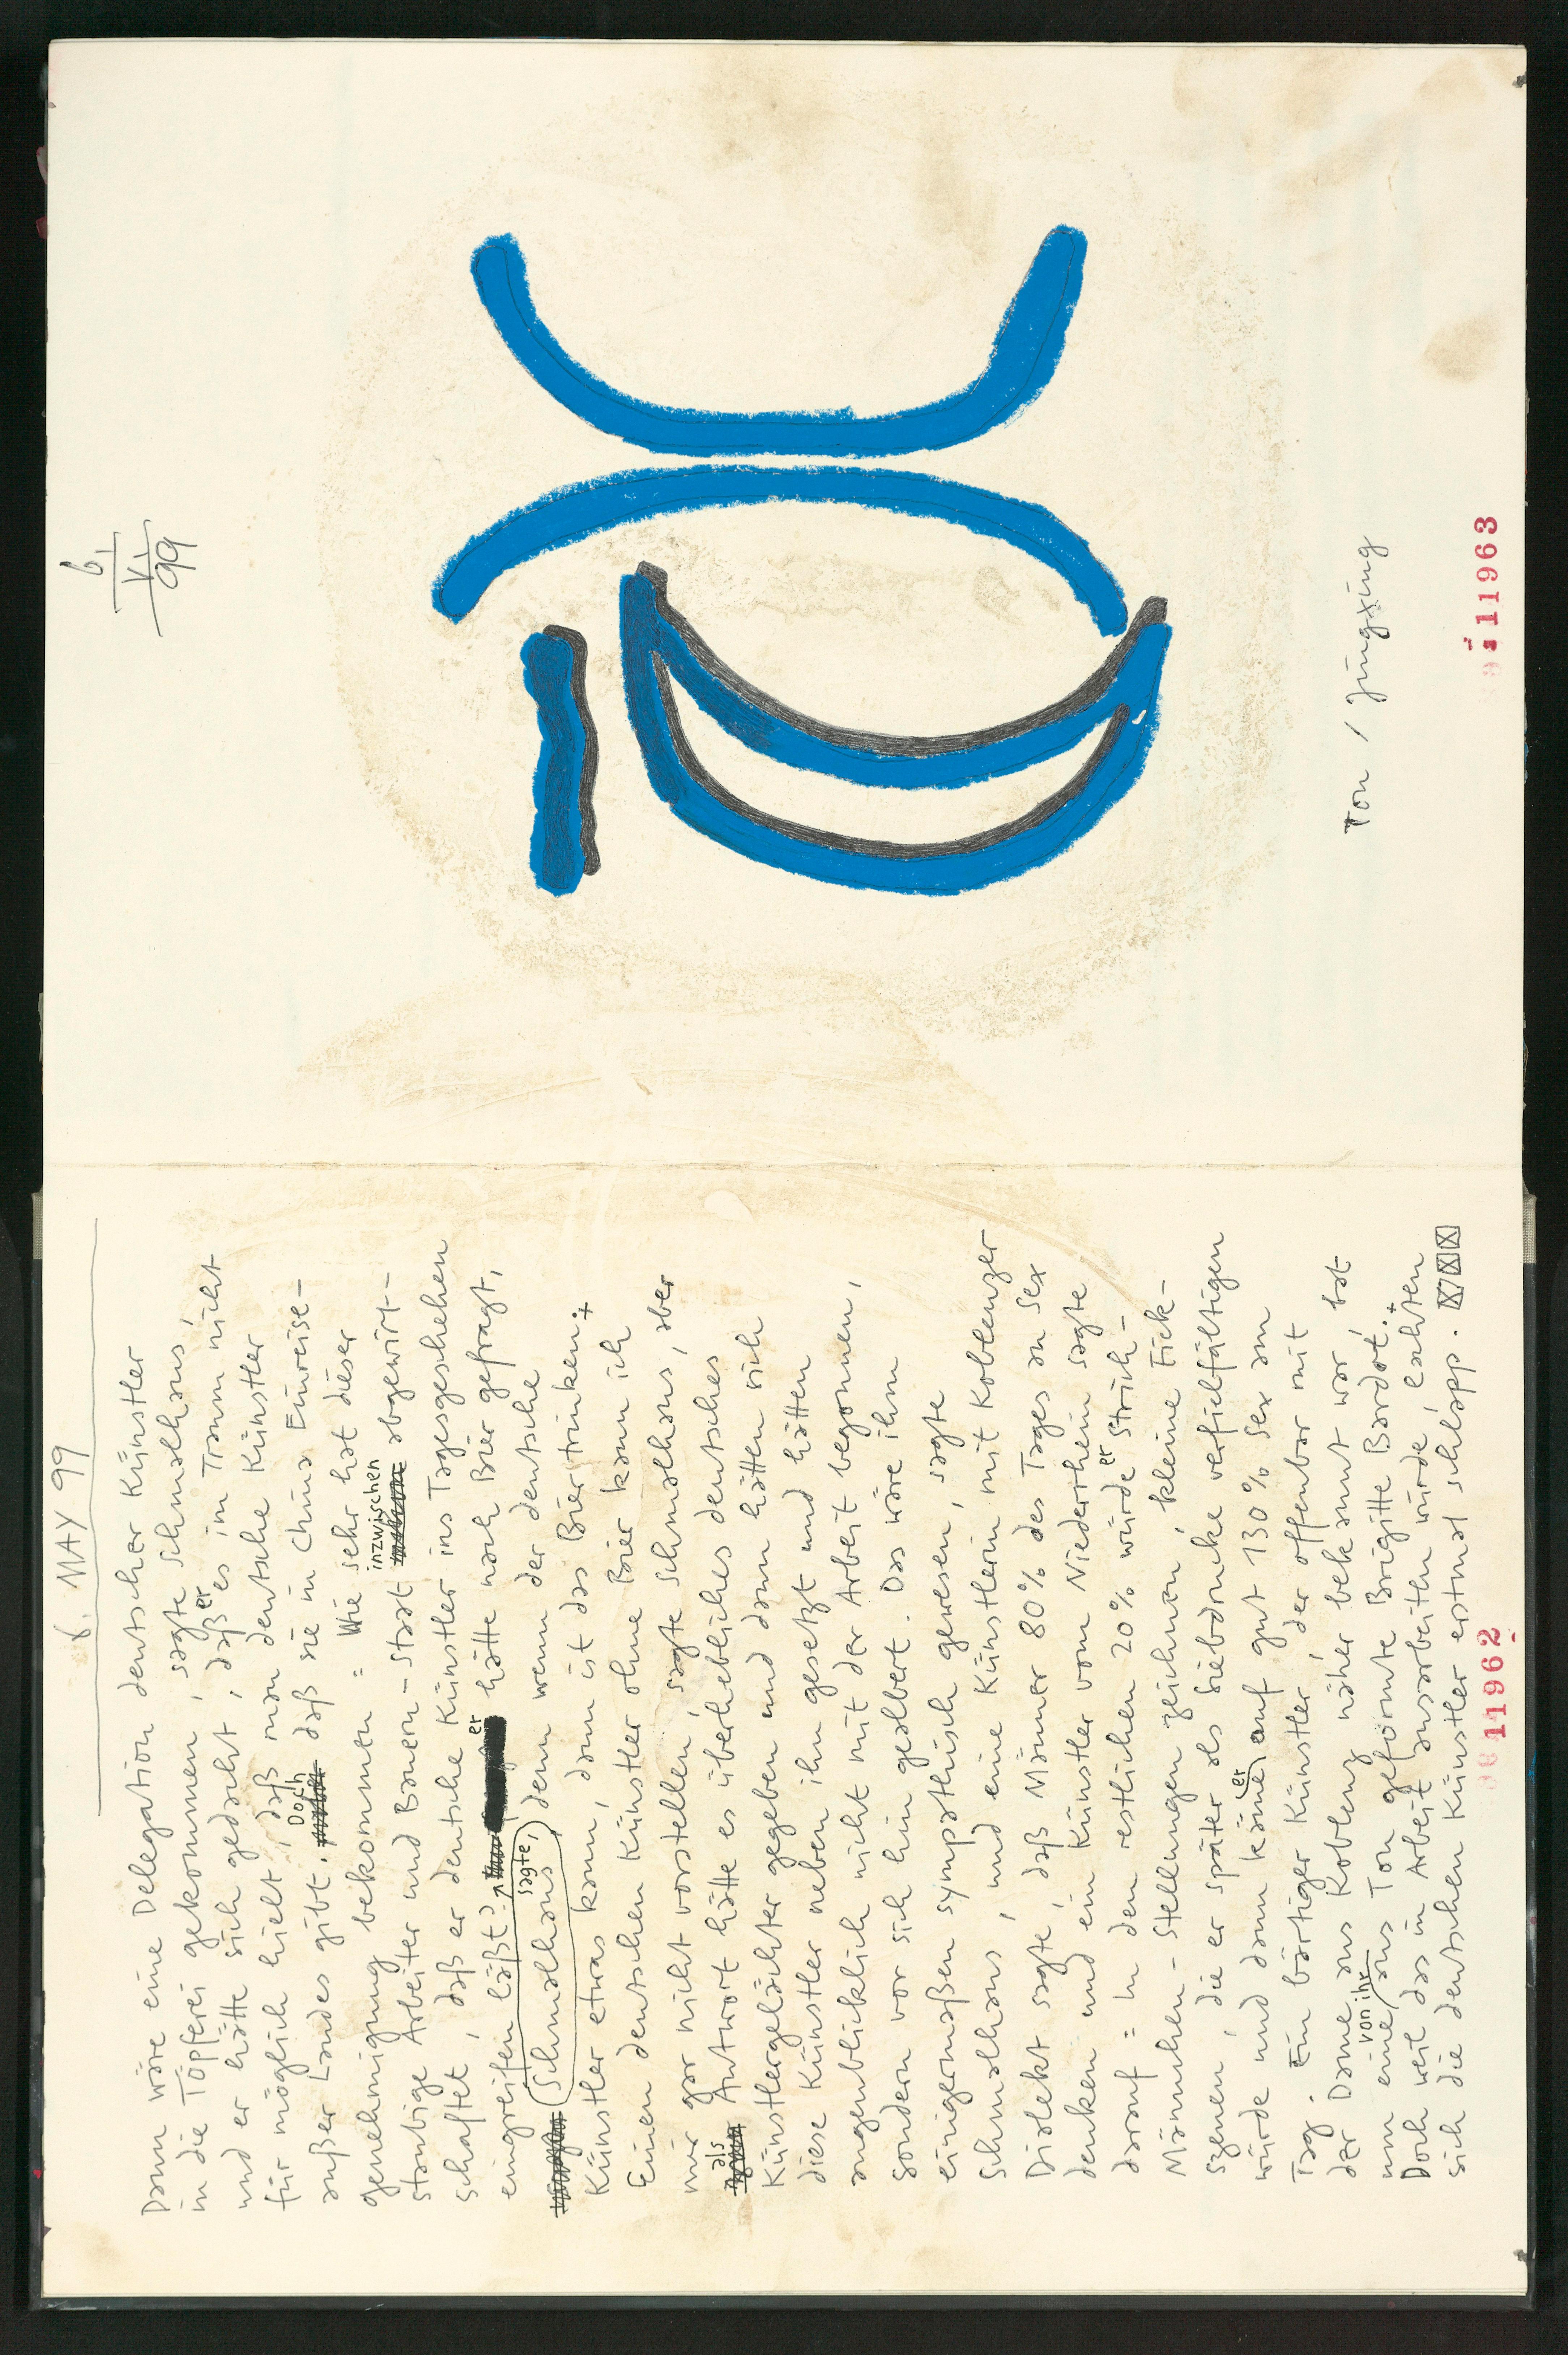 6. MAY 99
Dann wäre eine Delegation deutscher Künstler
in die Töpferei gekommen, sagte Schmalhaus,
und er hätte sich gedacht, daß er es im Traum nicht
für möglich hielt, daß man deutsche Künstler
außer Landes gibt. Doch daß sie in China Einreise-
genehmigung bekommen = Wie sehr hat dieser
staubige Arbeiter und Bauern-Staat inzwischen abgewirt-
schaftet, daß er deutsche Künstler ins Tagesgeschehen
eingreifen läßt? er hätte nach Bier gefragt,
(Schmalhaus sagte,) denn wenn der deutsche
Künstler etwas kann, dann ist das Biertrinken.+
Einen deutschen Künstler ohne Bier kann ich
mir gar nicht vorstellen, sagte Schmalhaus, aber
als Antwort hätte es überhebliches deutsches
Künstlergelächter gegeben und dann hätten sich
diese Künstler neben ihn gesetzt und hätten
augenblicklich nicht mit der Arbeit begonnen,
sondern vor sich hin gealbert. Das wäre ihm
einigermaßen sympathisch gewesen, sagte
Schmalhaus, und eine Künstlerin mit Koblenzer
Dialekt sagte, daß Männer 80% des Tages an Sex
denken und ein Künstler vom Niederrhein sagte
darauf = In den restlichen 20% würde er Strich-
Männchen-Stellungen zeichnen, kleine Fick-
szenen, die er später als Siebdrucke verfielfältigen
würde und dann käme er auf gut 130% Sex am
Tag. Ein bärtiger Künstler, der offenbar mit
der Dame aus Koblenz näher bekannt war, bat
um eine von ihr aus Ton geformte Brigitte Bardot.+
Doch weil das in Arbeit ausarbeiten würde, lachten
sich die deutschen Künstler erstmal schlapp.
11962
6.
V.
99
Ton / Jingxing
11963